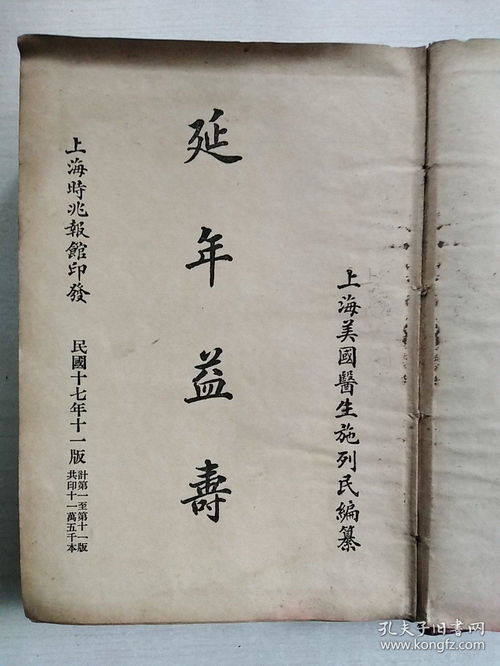 上海美國醫生施列民編纂
延年益壽
上海時兆報館印發
民國十七年十一版
計第一至第十一版
共印十一萬五千本
孔夫子旧书网
www.kongfz.com